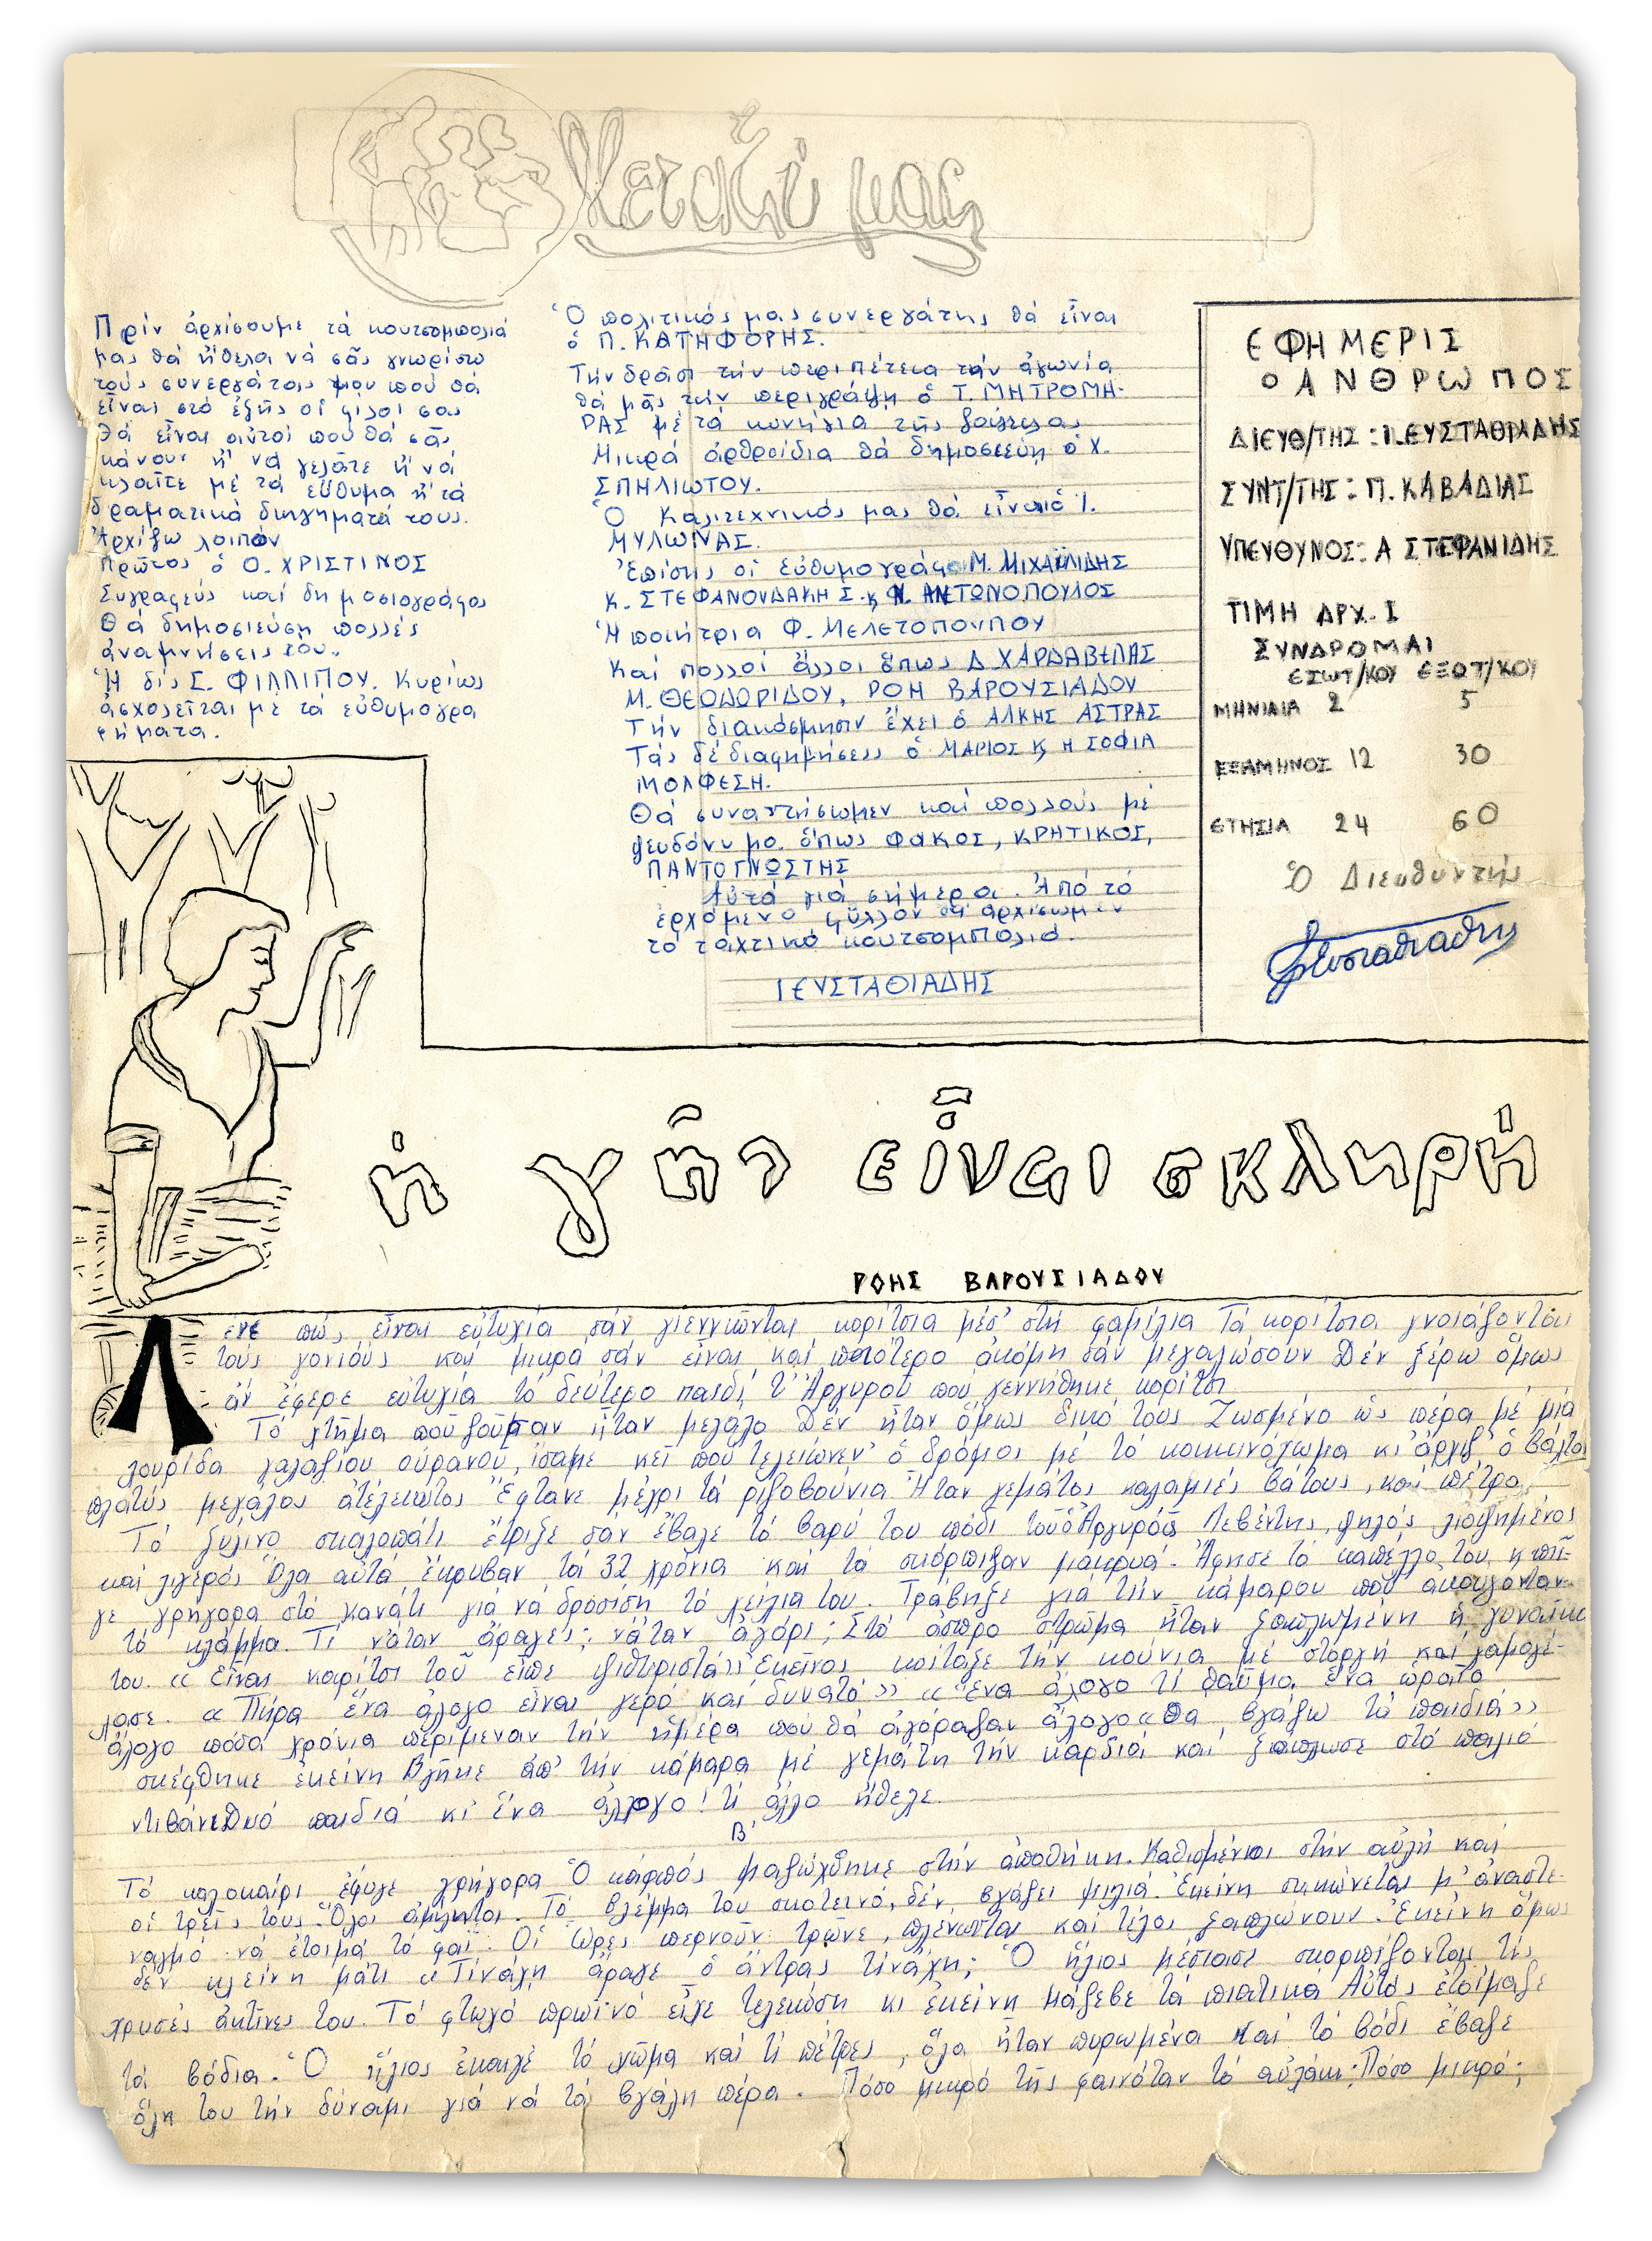 Μεταξύ μας
Πρίν ἀρχίσουμε τά κουτσομπολιά
μας θά ἤθελα νά σᾶς γνωρίσω
τούς συνεργάτας μου πού θά
εἶναι στό ἑξῆς οἱ φίλοι σας
Θά εἶναι αὐτοί πού θά σᾶς
κάνουν ἤ νά γελᾶτε ἤ νά
κλαῖτε μέ τά εὔθυμα ἤ τά
δραματικά διηγήματά τους.
Ἀρχίζω λοιπόν
Πρῶτος ὁ Ο. ΧΡΙΣΤΙΝΟΣ
Συγραφεύς καί δημοσιογράφος
Θά δημοσιεύση πολλές
ἀναμνήσεις του.
Ἡ δίς Σ. ΦΙΛΛΙΠΟΥ. Κυρίως
ἀσχολεῖται μέ τά εὐθυμογρα
φήματα.
Ὁ πολιτικός μας συνεργάτης θά εἶναι
ὁ Π. ΚΑΤΗΦΟΡΗΣ.
Τήν δρᾶσι τήν περιπέτεια τήν ἀγωνία
θά μᾶς τήν περιγράψη ὁ Τ. ΜΗΤΡΟΜΗ-
ΡΑΣ μέ τά κυνήγια τῆς ζούγκλας
Μικρά ἀρθρίδια θά δημοσιεύη ὁ Χ.
ΣΠΗΛΙΩΤΟΥ.
Ὁ Καλιτεχνικός μας θά εἶναι ὁ Ι.
ΜΥΛΩΝΑΣ.
Ἐπίσης οἱ εὐθυμογράφοι Μ. ΜΙΧΑΪΛΙΔΗΣ
Κ. ΣΤΕΦΑΝΟΥΔΑΚΗ Σ. κ Ν. ΑΝΤΩΝΟΠΟΥΛΟΣ
Ἡ ποιήτρια Φ. ΜΕΛΕΤΟΠΟΥΛΟΥ
Καί πολλοί ἄλλοι ὅπως Δ ΧΑΡΔΑΒΕΛΛΑΣ
Μ. ΘΕΟΔΩΡΙΔΟΥ, ΡΟΗ ΒΑΡΟΥΣΙΑΔΟΥ
Τήν διακόσμησιν ἔχει ὁ ΑΛΚΗΣ ΑΣΤΡΑΣ
Τάς δέ διαφημήσεις ὁ ΜΑΡΙΟΣ κ Η ΣΟΦΙΑ
ΜΟΛΦΕΣΗ.
Θά συναντήσωμεν καί πολλούς μέ
ψευδόνυμο ὅπως ΦΑΚΟΣ, ΚΡΗΤΙΚΟΣ,
ΠΑΝΤΟΓΝΩΣΤΗΣ
Αὐτά γιά σήμερα. Ἀπό τό
ἐρχόμενο φύλλον θά ἀρχίσωμεν
τό ταχτικό κουτσομπολιό.
Ι ΕΥΣΤΑΘΙΑΔΗΣ
ΕΦΗΜΕΡΙΣ
Ο ΑΝΘΡΩΠΟΣ
ΔΙΕΥΘ/ΤΗΣ : Ι. ΕΥΣΤΑΘΙΑΔΗΣ
ΣΥΝΤ/ΤΗΣ : Π. ΚΑΒΑΔΙΑΣ
ΥΠΕΥΘΥΝΟΣ: Α ΣΤΕΦΑΝΙΔΗΣ
ΤΙΜΗ ΔΡΧ. 1
ΣΥΝΔΡΟΜΑΙ
ΕΣΩΤ/ΚΟΥ ΕΞΩΤ/ΚΟΥ
ΜΗΝΙΑΙΑ 2 5
ΕΞΑΜΗΝΟΣ 12 30
ΕΤΗΣΙΑ 24 60
Ὁ Διευθυντής
Ευσταθιαδης
ἡ γῆς εἶναι σκληρή
ΡΟΗΣ ΒΑΡΟΥΣΙΑΔΟΥ
Λένε πώς εἶναι εὐτυχία σάν γιεννιῶνται κορίτσια μέσ' στή φαμίλια Τά κορίτσια γνοιάζονται
τούς γονιούς καί μικρά σάν εἶναι καί πιότερο ἀκόμη σάν μεγαλώσουν Δέν ξέρω ὅμως
ἄν ἔφερε εὐτυχία τό δεύτερο παιδί τ' Ἀργυροῦ πού γεννήθηκε κορίτσι
Τό χτῆμα πού ζοῦσαν ἦταν μεγάλο Δέν ἦταν ὅμως δικό τους Ζωσμένο ὡς πέρα μέ μιά
λουρίδα γαλαζίου οὐρανοῦ, ἴσαμε κεῖ πού τελείωνεν ὁ δρόμος μέ τό κοκκινόχωμα κι ἄρχιζ' ὁ βάλτος
πλατύς μεγάλος ἀτέλειωτος Ἔφτανε μέχρι τά ριζοβούνια Ἦταν γεμάτος καλαμιές βάτους, καί πέτρα
Τό ξύλινο σκαλοπάτι ἔτριξε σάν ἔβαλε τό βαρύ του πόδι ὁ Ἀργυρός Λεβέντης, ψηλός λιοψημένος
καί λιγερός Ὅλα αὐτά ἔκρυβαν τά 32 χρόνια καί τά σκόρπιζαν μακρυά. Ἄφησε τό καπέλλο του κ πῆ-
γε γρήγορα στό κανάτι γιά νά δροσίση τά χείλια του. Τράβηξε γιά τήν κάμαρου πού ἀκουγόνταν
τό κλάμμα. Τί νἆταν ἄραγες; νἆταν ἀγόρι; Στό ἄσπρο στρῶμα ἦταν ξαπλωμένη ἡ γυναίκα
του. «Εἶναι κορίτσι τοῦ εἶπε ψιθυριστά» Ἐκεῖνος κοίταξε τήν κούνια μέ στοργή καί χαμογέ-
λασε. «Πῆρα ἕνα ἄλογο εἶναι γερό καί δυνατό» «Ἕνα ἄλογο τί θαῦμα ἕνα ὡραῖο
ἄλογο πόσα χρόνια περίμεναν τήν ἡμέρα πού θά ἀγόραζαν ἄλογο «Θα βγάζω τά παιδιά»
σκέφθηκε ἐκείνη Βγῆκε ἀπ' τήν κάμαρα μέ γεμάτη τήν καρδιά καί ξάπλωσε στό παλιό
ντιβάνι Δυό παιδιά κι ἕνα ἄλογο! τί ἄλλο ἤθελε.
Β'
Τό καλοκαίρι ἔφυγε γρήγορα Ὁ καρπός μαζώχθηκε στήν ἀποθήκη. Καθισμένοι στήν αὐλή καί
οἱ τρεῖς τους. Ὅλοι ἀμίλητοι. Τό βλέμμα του σκοτεινό, δέν βγάζει μιλιά. Ἐκείνη σηκώνεται μ' ἀναστε-
ναγμό νά ἑτοιμά τό φαΐ. Οἱ ὧρες περνοῦν: τρῶνε, πλένωνται καί τέλος ξαπλώνουν. Ἐκείνη ὅμως
δέν κλείνη μάτι «Τί νάχη ἄραγε ὁ ἄντρας τί νάχη; Ὁ ἥλιος μέσιασε σκορπίζοντας τίς
χρυσές ἀκτῖνες του. Τό φτωχό πρωϊνό εἶχε τελειώση κι ἐκείνη μάζεβε τά πιατικά Αὐτός ἑτοίμαζε
τά βόδια. Ὁ ἥλιος ἔκαιγε τό χῶμα καί τί πέτρες, ὅλα ἦταν πυρωμένα Καί τό βόδι ἔβαζε
ὅλη του τήν δύναμι γιά νά τά βγάλη πέρα. Πόσο μικρό τῆς φαινόταν τό αὐλάκι; Πόσο μικρό;